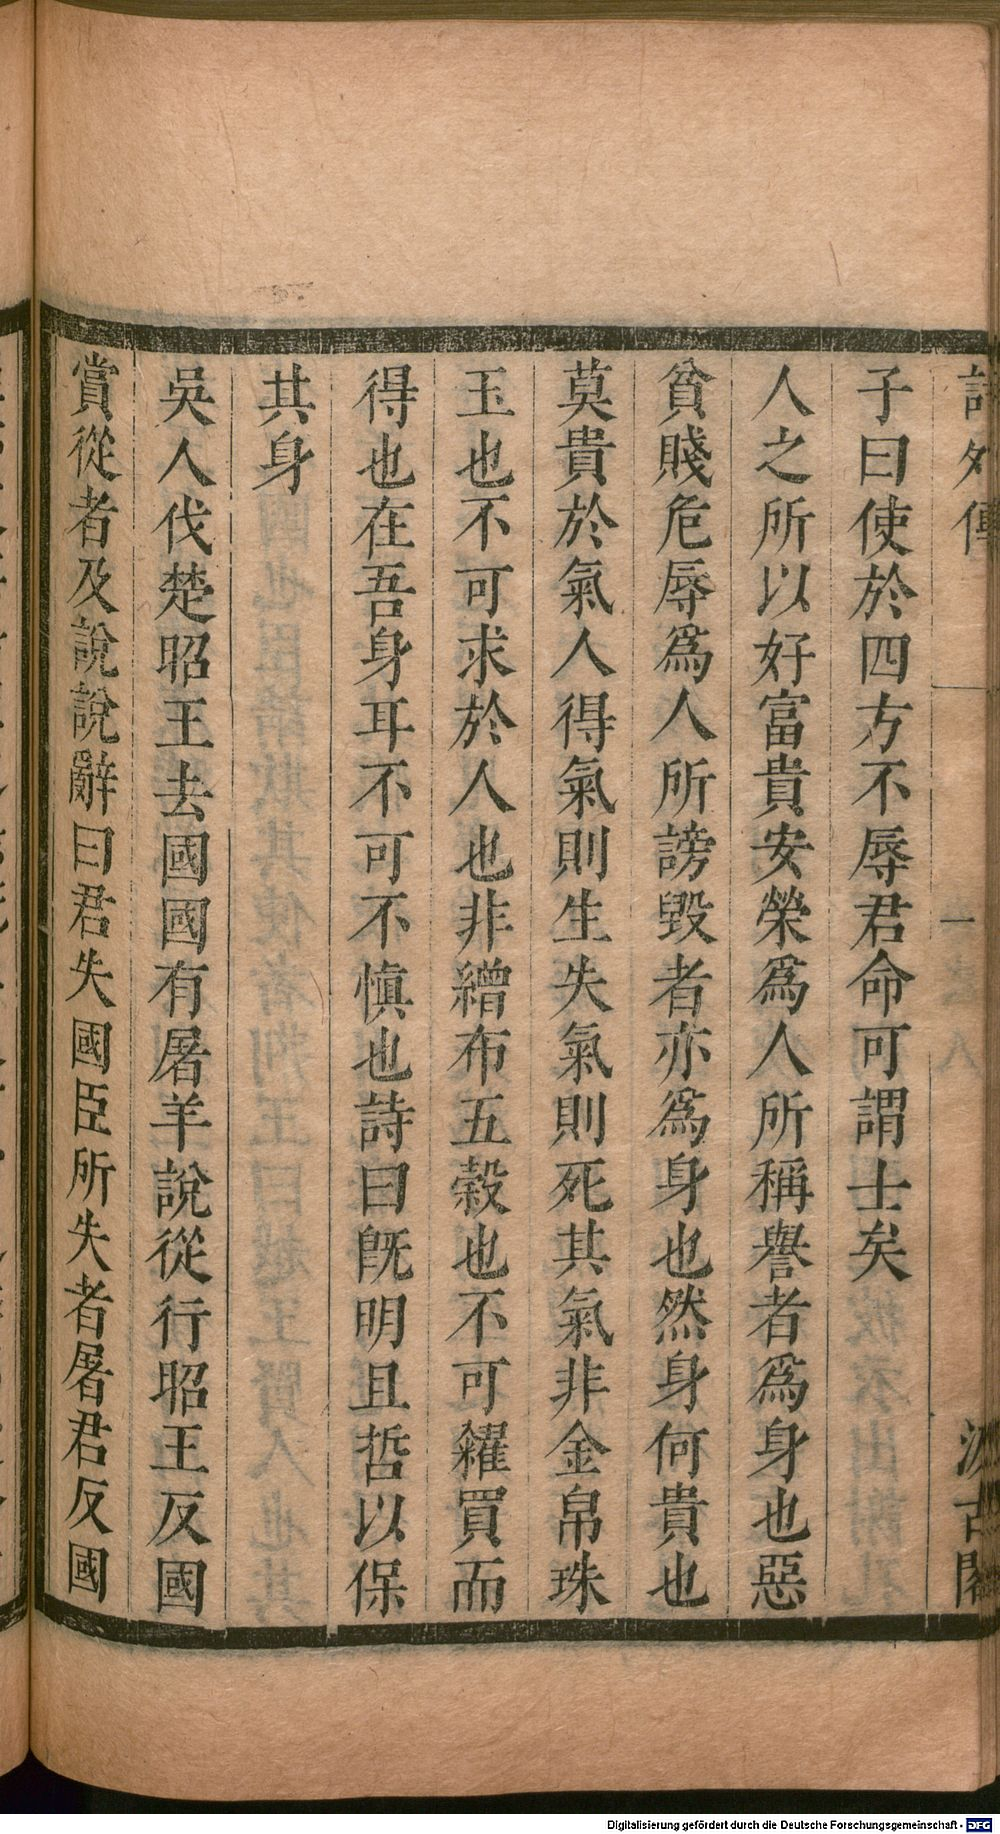 詩外傳 一 汲古閣
子曰使於四方不辱君命可謂士矣
人之所以好富貴安榮爲人所稱譽者爲身也惡
貧賤危辱爲人所謗毀者亦爲身也然身何貴也
莫貴於氣人得氣則生失氣則死其氣非金帛珠
玉也不可求於人也非繒布五穀也不可糴買而
得也在吾身耳不可不慎也詩曰旣明且哲以保
其身
吳人伐楚昭王去國國有屠羊說從行昭王反國
賞從者及說說辭曰君失國臣所失者屠君反國
Digitalisierung gefördert durch die Deutsche Forschungsgemeinschaft - DFG